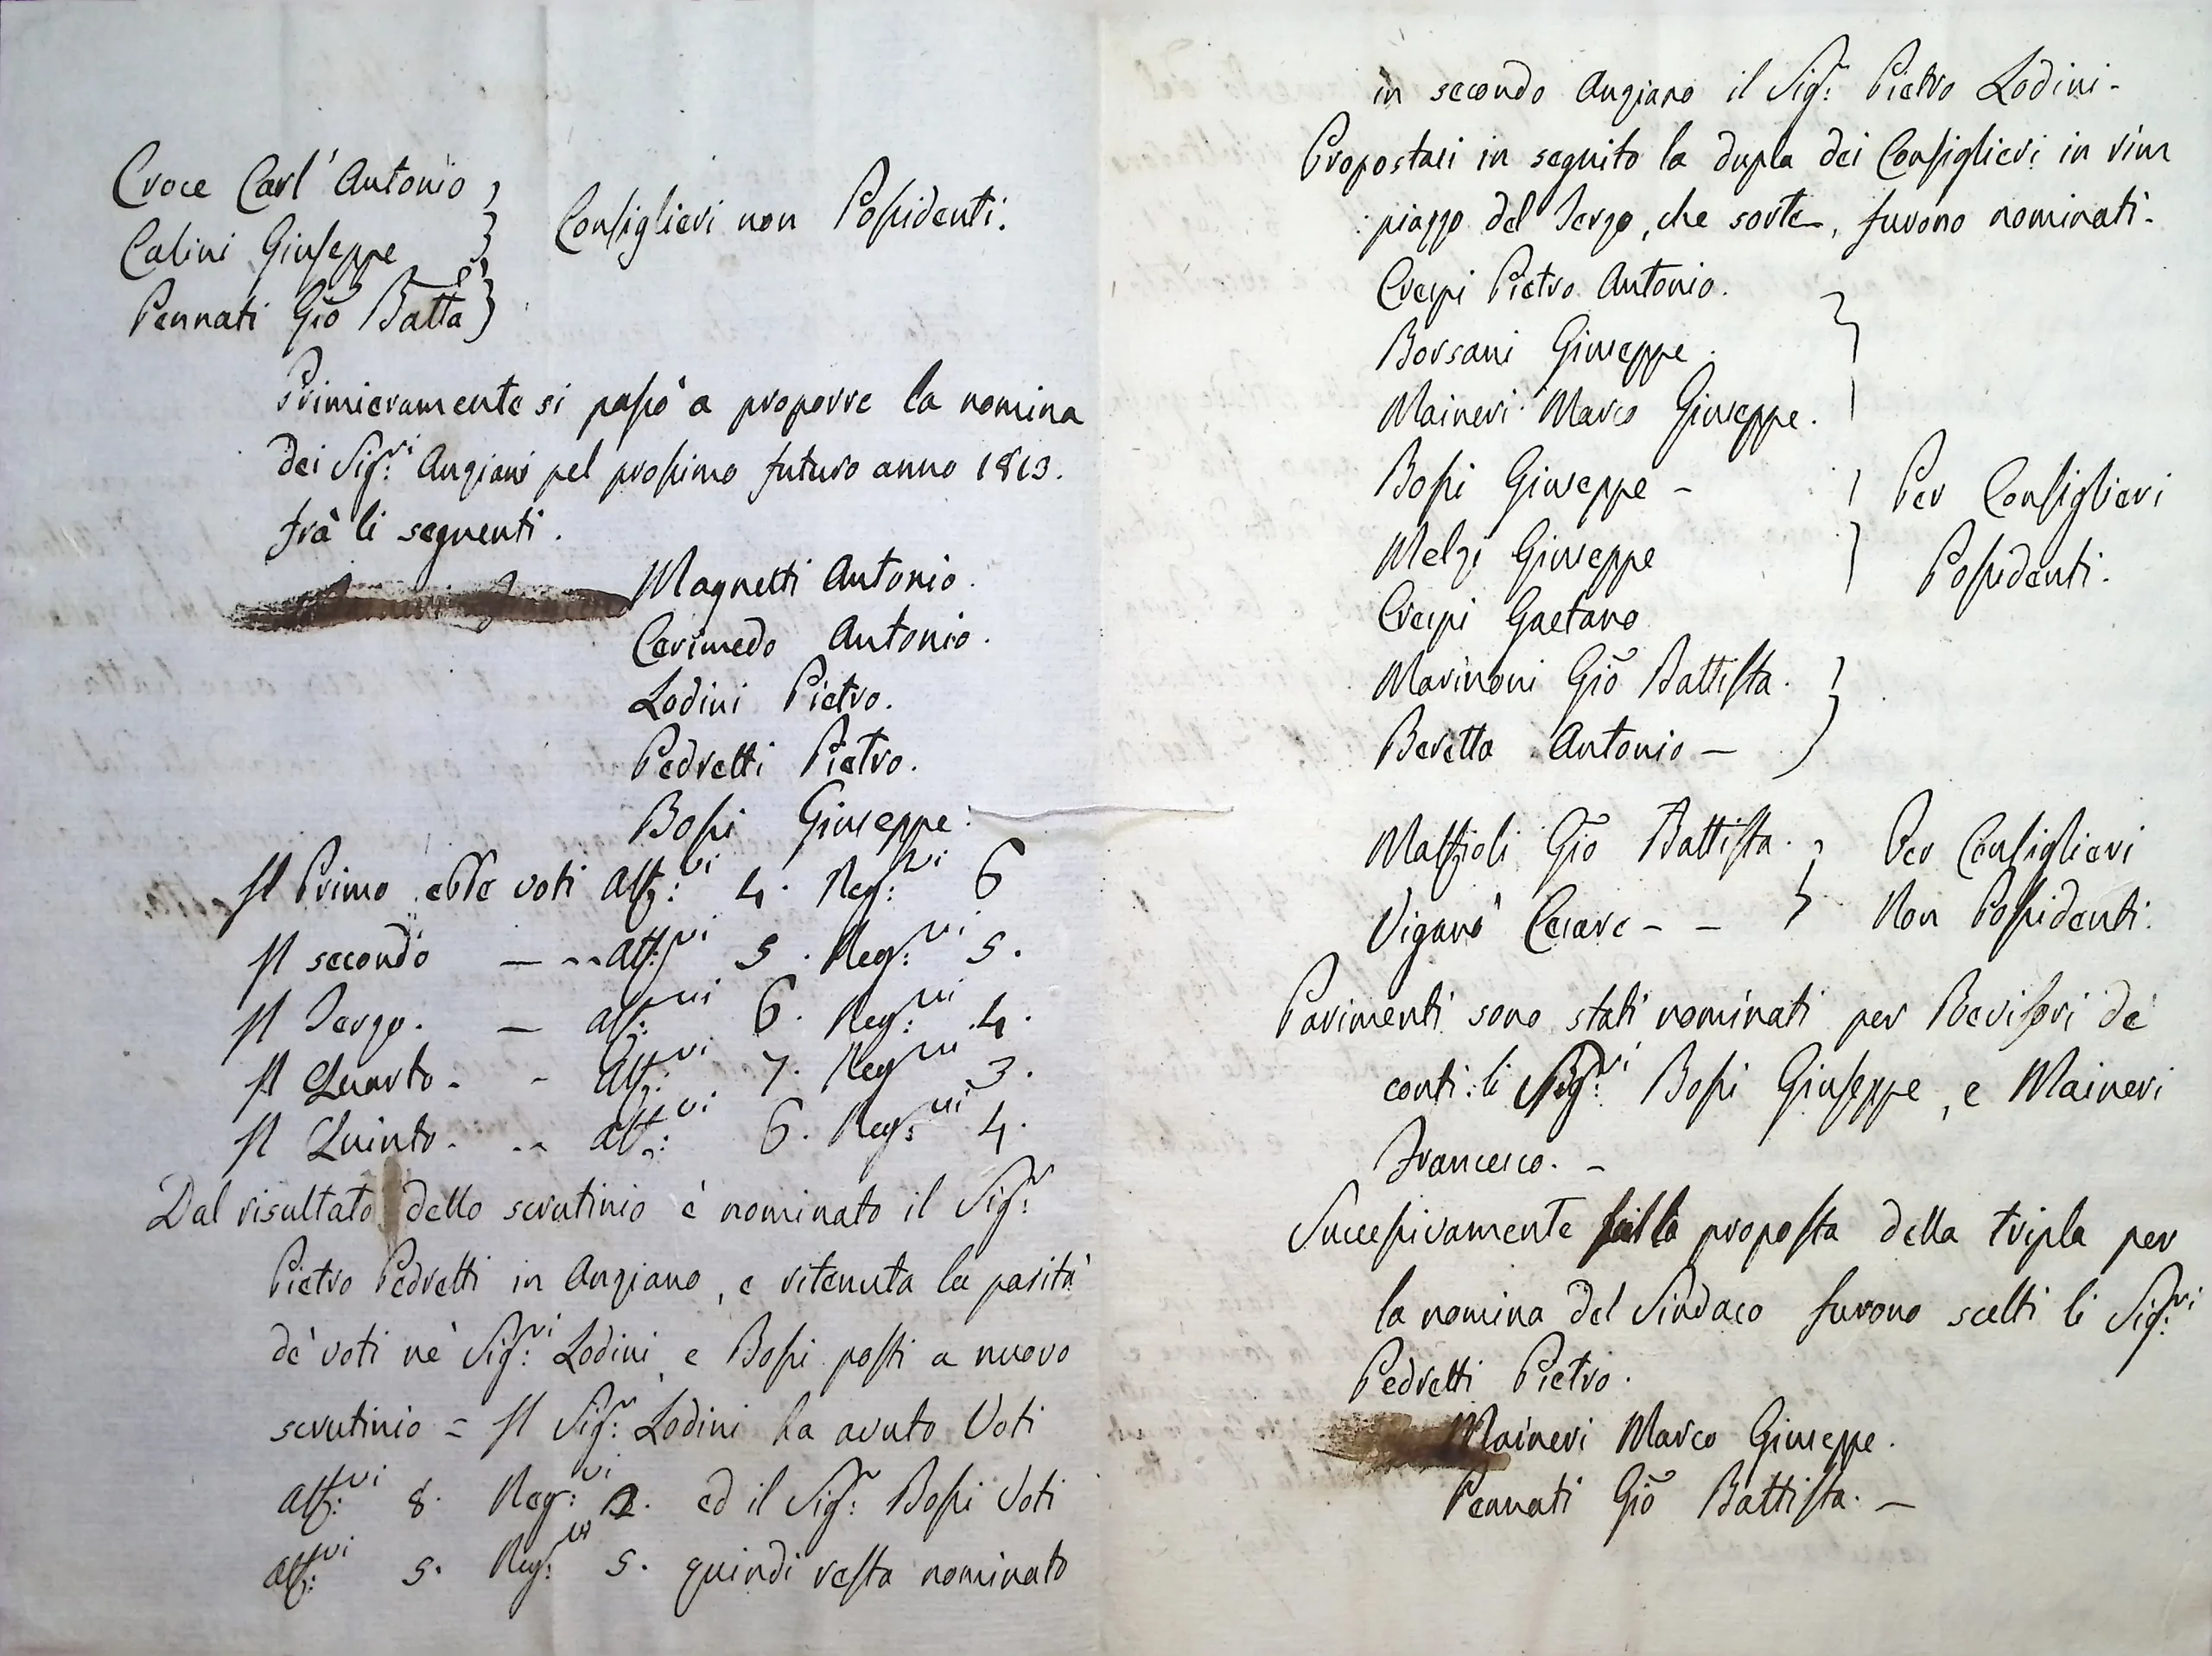 Croce Carl' Antonio
Calini Giuseppe
Consiglieri non Possidenti.
Pennati Gio Batta
Primieramente si passò a proporre la nomina
dei Sig.ri Anziani pel prossimo futuro anno 1813.
frà li seguenti.
Magnetti Antonio.
Cerimedo Antonio.
Lodini Pietro.
Pedretti Pietro.
Bossi Giuseppe.
Il Primo ebbe voti Aff:vi 4. Neg:vi 6
Il secondo — -- Aff:vi 5. Neg:vi 5.
Il Terzo. — Aff:vi 6. Neg:vi 4.
Il Quarto. - Aff:vi 7. Neg:vi 3.
Il Quinto. -- Aff:vi 6. Neg:vi 4.
Dal risultato dello scrutinio è nominato il Sig.r
Pietro Pedretti in Anziano, e ritenuta la parità
dè voti nè Sig.ri Lodini, e Bossi posti a nuovo
scrutinio = Il Sig.r Lodini ha avuto Voti
Aff:vi 8. Neg:vi 2. ed il Sig.r Bossi Voti
Aff:vi 5. Neg:vi 5. quindi resta nominato
in secondo Anziano il Sig.r Pietro Lodini-
Propostasi in seguito la dupla dei Consiglieri in rim
piazzo del Terzo, che sorte, furono nominati-
Crespi Pietro Antonio.
Borsani Giuseppe.
Maineri Marco Giuseppe.
Bossi Giuseppe -
Per Consiglieri
Melzi Giuseppe
Possidenti.
Crespi Gaetano
Marinoni Giò Battista.
Beretta Antonio —
Mattioli Giò Battista. Per Consiglieri
Viganò Cesare - - Non Possidenti.
Parimenti sono stati nominati per Revisori de'
conti li Sig.ri Bossi Giuseppe, e Maineri
Francesco. -
Successivamente fatta proposta della tripla per
la nomina del Sindaco furono scelti li Sig.ri
Pedretti Pietro.
Maineri Marco Giuseppe.
Pennati Giò Battista. —